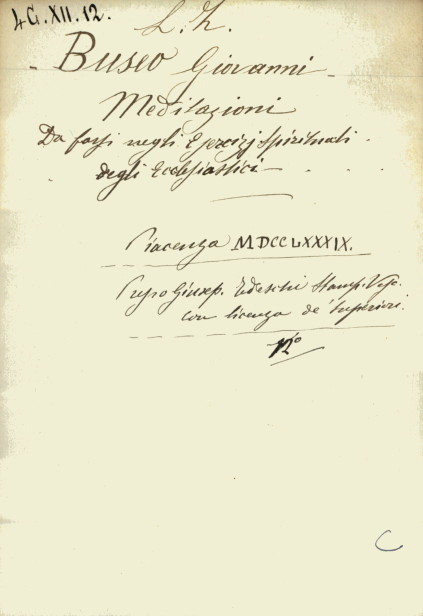 4G.XII.12.
L. Z.
- Buseo Giovanni -
Meditazioni
Da farsi negli Esercizj Spirituali
degli Ecclesiastici
Piacenza MDCCLXXXIX.
Presso Giusep. Tedeschi Stamp. Vesc.
con licenza de' Superiori.
12º
C